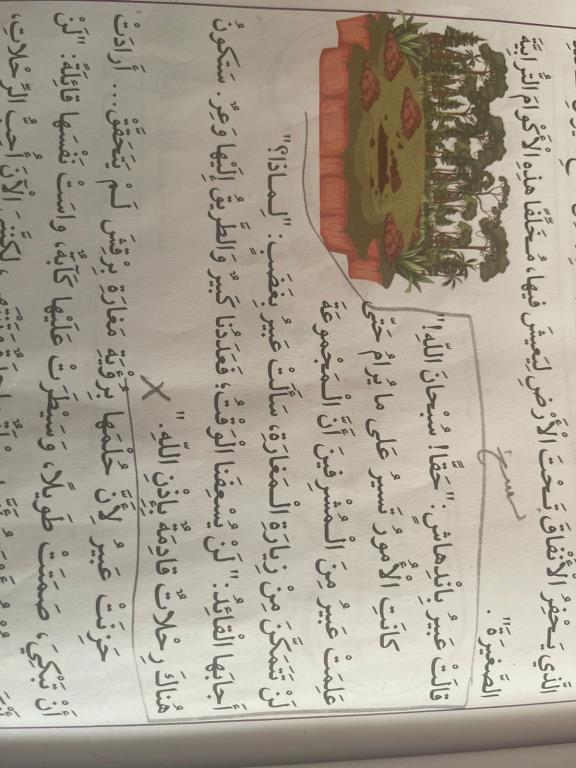 الَّذي يَحْفِرُ الْأَنْفاقَ تَحْتَ الْأَرْضِ لِيَعيشَ فيها، مُخَلِّفًا هذِهِ الْأَكْوامَ التُّرابِيَّةَ
الصَّغيرَةَ".
نسخ
قالَتْ عَبيرُ بِانْدِهاشٍ: "حَقًّا! سُبْحانَ اللّهِ!"
كانَتِ الْأُمورُ تَسيرُ عَلى ما يُرامُ حَتّى
عَلِمَتْ عَبيرُ مِنَ الْمُشْرِفينَ أَنَّ الْمَجْموعَةَ
لَنْ تَتَمَكَّنَ مِنْ زِيارَةِ الْمَغارَةِ، سَأَلَتْ عَبيرُ بِغَضَبٍ: "لِماذا؟"
أَجابَها الْقائِدُ: "لَنْ يُسْعِفَنا الْوَقْتُ؛ فَعَدَدُنا كَبيرٌ وَالطَّريقُ إِلَيْها وَعِرٌ. سَتَكونُ
هُناكَ رِحْلاتٌ قادِمَةٌ بِإِذْنِ اللّهِ."
حَزِنَتْ عَبيرُ لِأَنَّ حُلْمَها بِرُؤْيَةِ مَغارَةِ بِرْقِشَ لَمْ يَتَحَقَّقْ... أَرادَتْ
أَنْ تَبْكِيَ، صَمَتَتْ طَويلًا، وَسَيْطَرَتْ عَلَيْها كَآبَةٌ، واسَتْ نَفْسَها قائِلَةً: "لَنْ
لكِنَّني الْآنَ أُحِبُّ الرِّحْلاتِ،